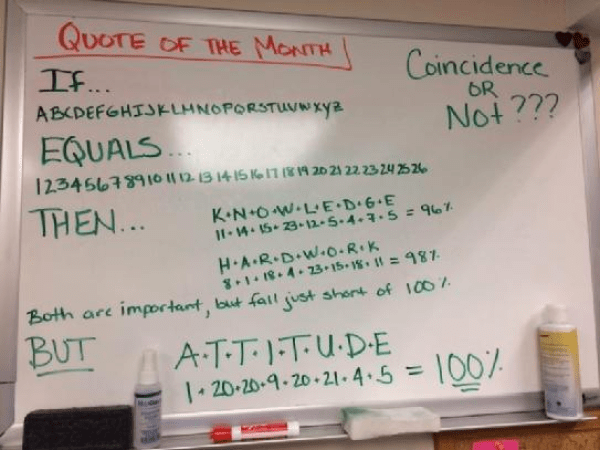 QUOTE OF THE MONTH
Coincidence
OR
Not???
If...
ABCDEFGHIJKLMNOPQRSTUVWXYZ
EQUALS...
1 2 3 4 5 6 7 8 9 10 11 12 13 14 15 16 17 18 19 20 21 22 23 24 25 26
THEN...
K+N+O+W+L+E+D+G+E
11+14+15+23+12+5+4+7+5 = 96%
H+A+R+D+W+O+R+K
8+1+18+4+23+15+18+11 = 98%
Both are important, but fall just short of 100%
BUT
A+T+T+I+T+U+D+E
1+20+20+9+20+21+4+5 = 100%